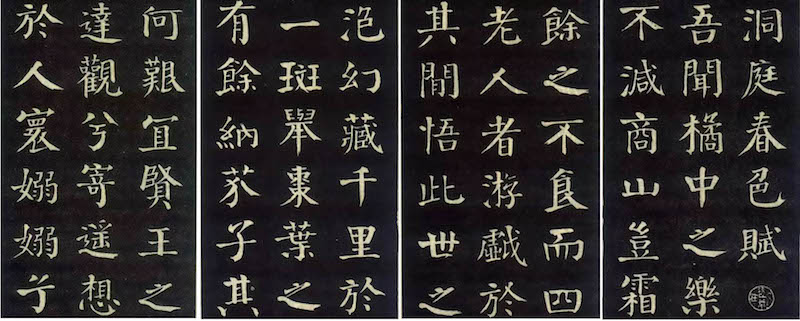 洞庭春色賦
吾聞橘中之樂
不減商山豈霜
餘之不食而四
老人者游戱於
其間悟此世之
泡幻藏千里於
一斑舉棗葉之
有餘納芥子其
何艱冝賢王之
達觀兮寄遥想
於人寰嫋嫋兮